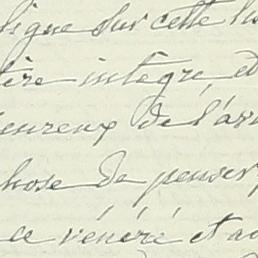 ligne sur cette his
tère intègre et
eureux de l'arr
hose de penser,
ce vénéré et ac